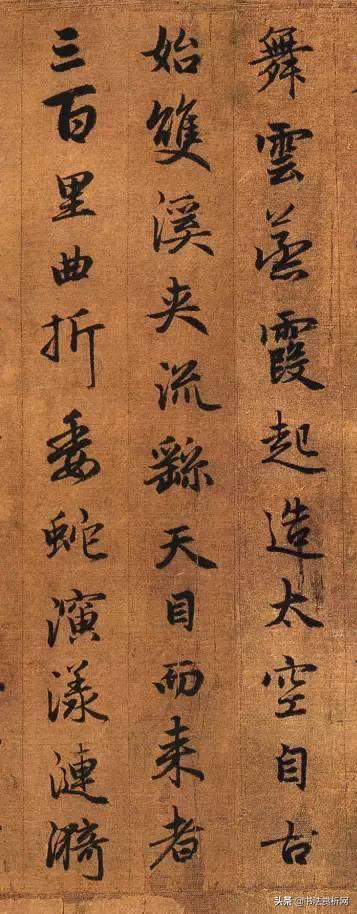 舞雲蒸霞起造太空自古
始雙溪夾流繇天目而来者
三百里曲折委蛇演漾漣漪
头条 @书法赏析网